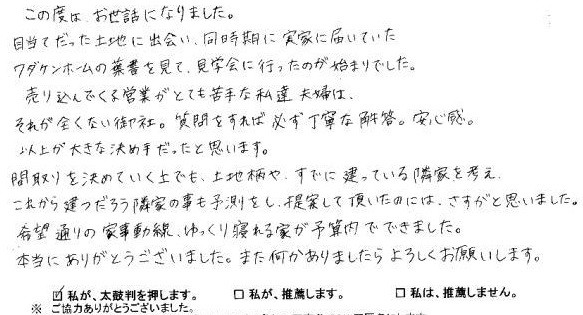 この度は、お世話になりました。
目当てだった土地に出会い、同時期に実家に届いていた
ワダケンホームの葉書を見て、見学会に行ったのが始まりでした。
売り込んでくる営業がとても苦手な私達夫婦は、
それが全くない御社。質問をすれば必ず丁寧な解答。安心感。
以上が大きな決め手だったと思います。
間取りを決めていく上でも、土地柄や、すでに建っている隣家を考え、
これから建つだろう隣家の事も予測をし、提案して頂いたのには、さすがと思いました。
希望通りの家事動線、ゆっくり寝れる家が予算内でできました。
本当にありがとうございました。また何かありましたらよろしくお願いします。
☑ 私が、太鼓判を押します。 □ 私が、推薦します。 □ 私は、推薦しません。
※ ご協力ありがとうございました。